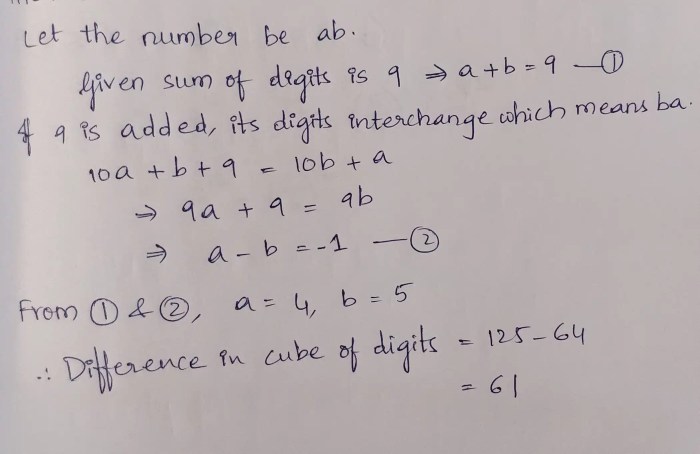 Let the number be ab.
Given sum of digits is 9 ⇒ a + b = 9 —①
If 9 is added, its digits interchange which means ba.
10a + b + 9 = 10b + a
⇒ 9a + 9 = 9b
⇒ a - b = -1 —②
From ① & ②, a = 4, b = 5
∴ Difference in cube of digits = 125 - 64
= 61